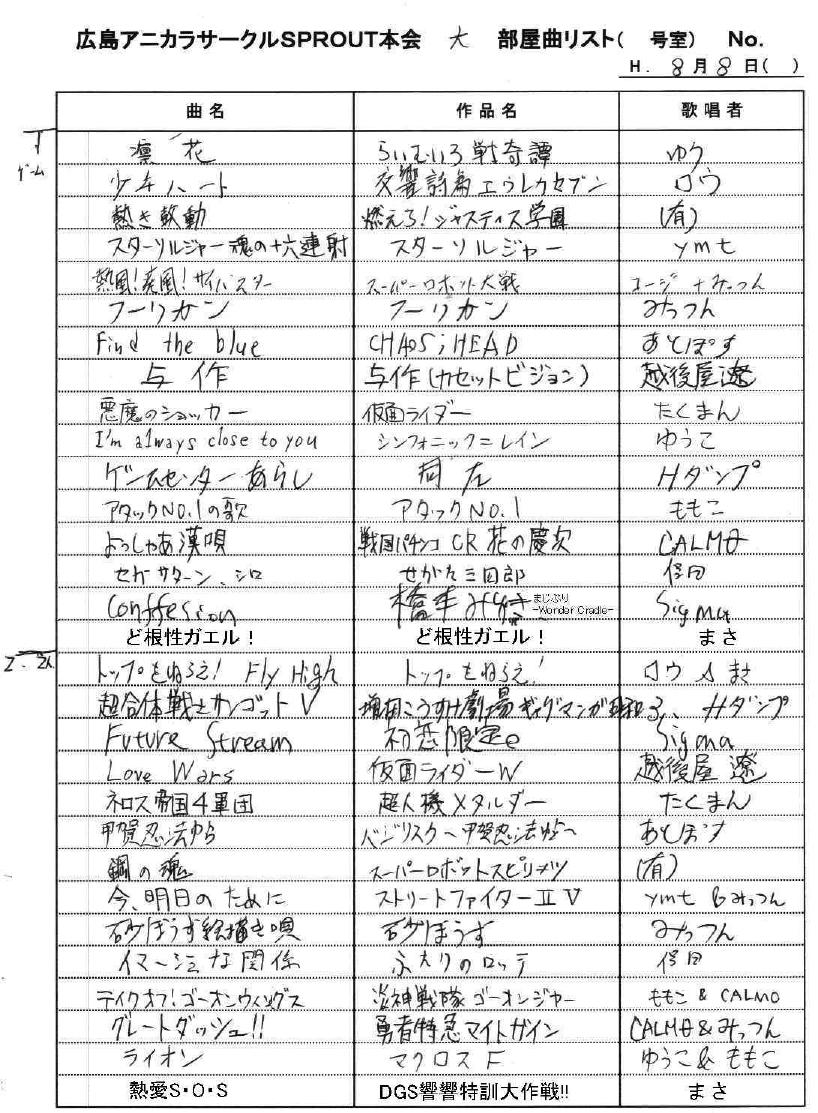 広島アニカラサークルSPROUT本会 大 部屋曲リスト( 号室) No.
H. 8月8日( )
曲名 作品名 歌唱者
ゲーム
凛花 らいむいろ戦奇譚 ゆう
少年ハート 交響詩篇エウレカセブン ロウ
熱き鼓動 燃えろ!ジャスティス学園 (有)
スターソルジャー魂の十六連射 スターソルジャー ymt
熱風!疾風!サイバスター スーパーロボット大戦 コージ+みっつん
フーリガン フーリガン みっつん
Find the blue CHAOS;HEAD あとぽす
与作 与作(カセットビジョン) 越後屋遼
悪魔のショッカー 仮面ライダー たくまん
I'm always close to you シンフォニック=レイン ゆうこ
ゲームセンターあらし 同左 Hダンプ
アタックNO.1の歌 アタックNO.1 ももこ
よっしゃあ漢唄 戦国パチンコ CR 花の慶次 CALMO
セガサターン、シロ せがた三四郎
Conffession 橋本みゆき まじぷり -Wonder Cradle- Sigma
ど根性ガエル! ど根性ガエル! まさ
トップをねらえ! Fly High トップをねらえ! ロウ & まさ
超合体戦士サンゴッドV 増田こうすけ劇場ギャグマンガ日和3 Hダンプ
Future Stream 初恋限定。 Sigma
Love Wars 仮面ライダーW 越後屋 遼
ネロス帝国4軍団 超人機メタルダー たくまん
甲賀忍法帖 バジリスク〜甲賀忍法帖〜 あとぽす
鋼の魂 スーパーロボットスピリッツ (有)
今、明日のために ストリートファイターII V ymt &みっつん
砂ぼうず絵描き唄 砂ぼうず みっつん
イマージュな関係 ふたりのロッテ
テイクオフ!ゴーオンウィングス 炎神戦隊ゴーオンジャー ももこ & CALMO
グレートダッシュ!! 勇者特急マイトガイン CALMO&みっつん
ライオン マクロスF ゆうこ & ももこ
熱愛S・O・S DGS響響特訓大作戦!! まさ